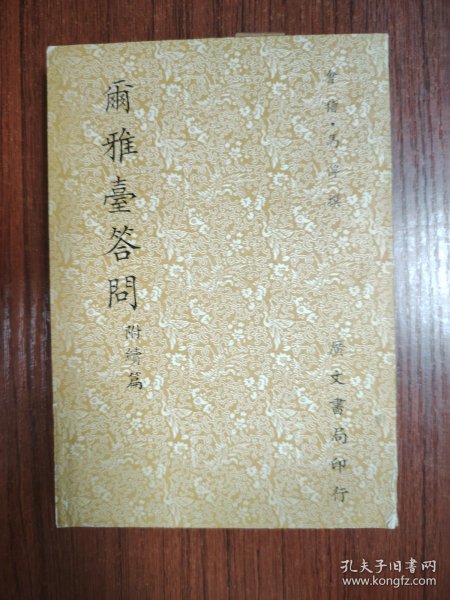 會稽·馬浮撰
廣文書局印行
爾雅臺答問
附續篇
孔夫子旧书网
www.kongfz.com